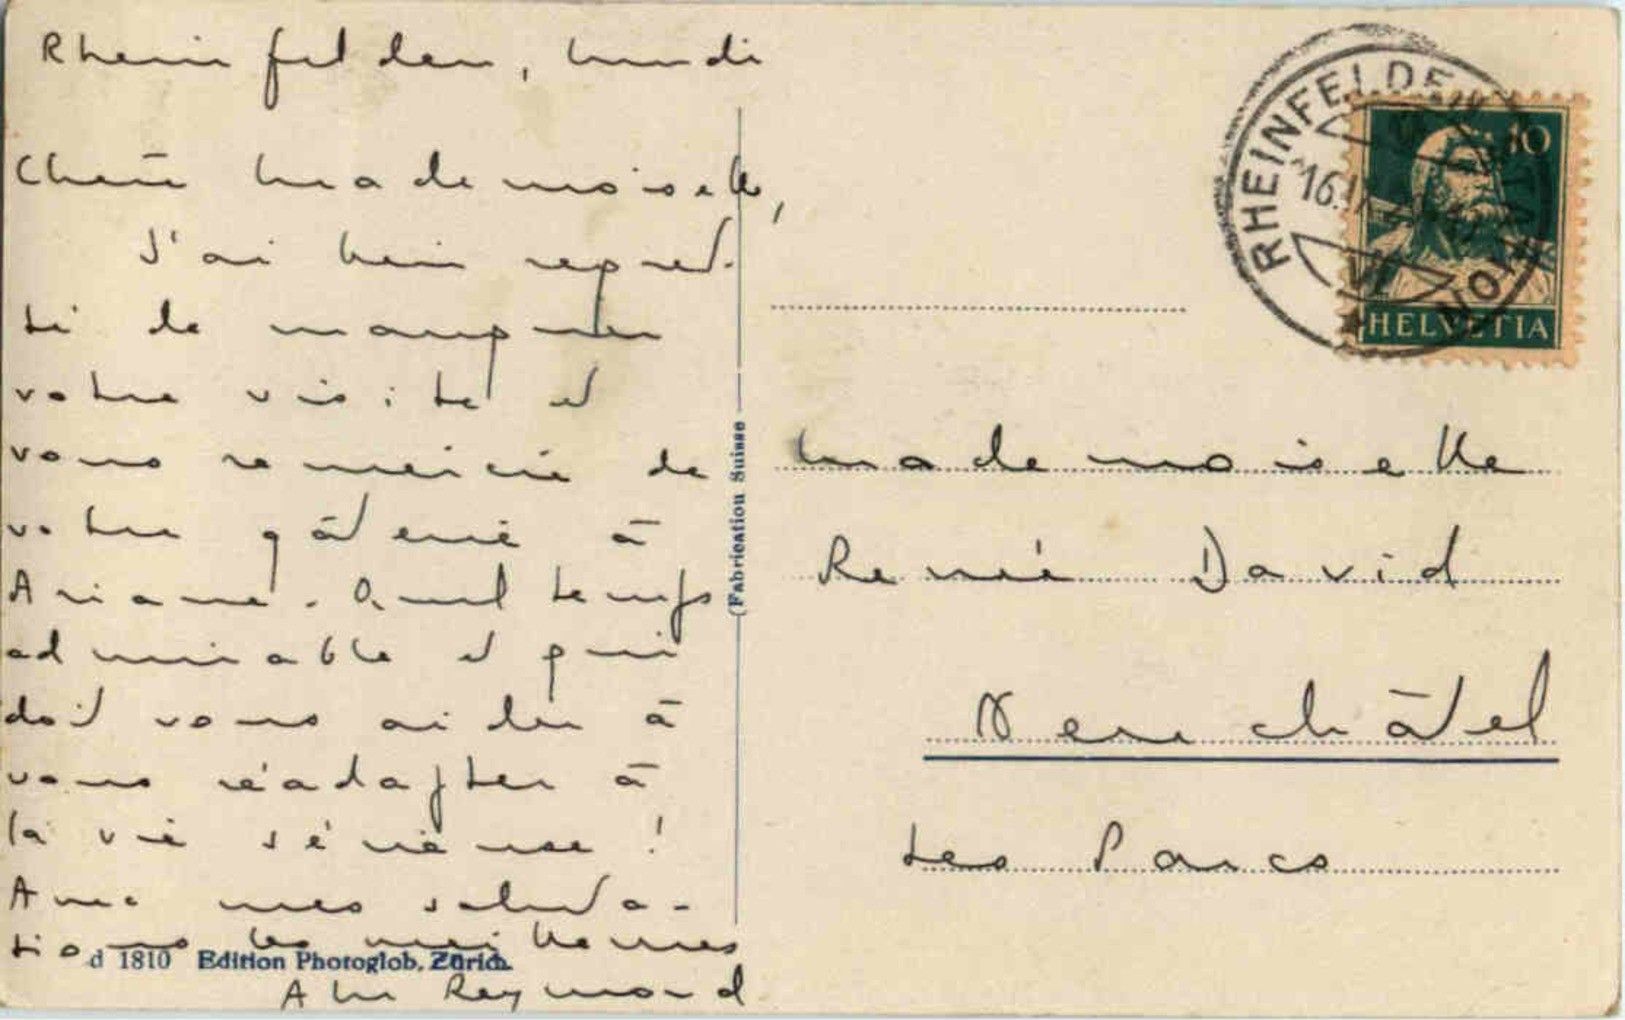 Rheinfelden, lundi
Chère Mademoiselle,
J'ai bien regret-
té de manquer
votre visite et
vous remercie de
votre gâterie à
Ariane. Quel temps
admirable et qui
doit vous aider à
vous réadapter à
la vie sérieuse !
Avec mes saluta-
tions les meilleures
Reymond
d 1810 Edition Photoglob, Zürich.
(Fabrication Suisse
RHEINFELDEN
16.
VI
10
HELVETIA
Mademoiselle
Renée David
Neuchâtel
Les Parcs